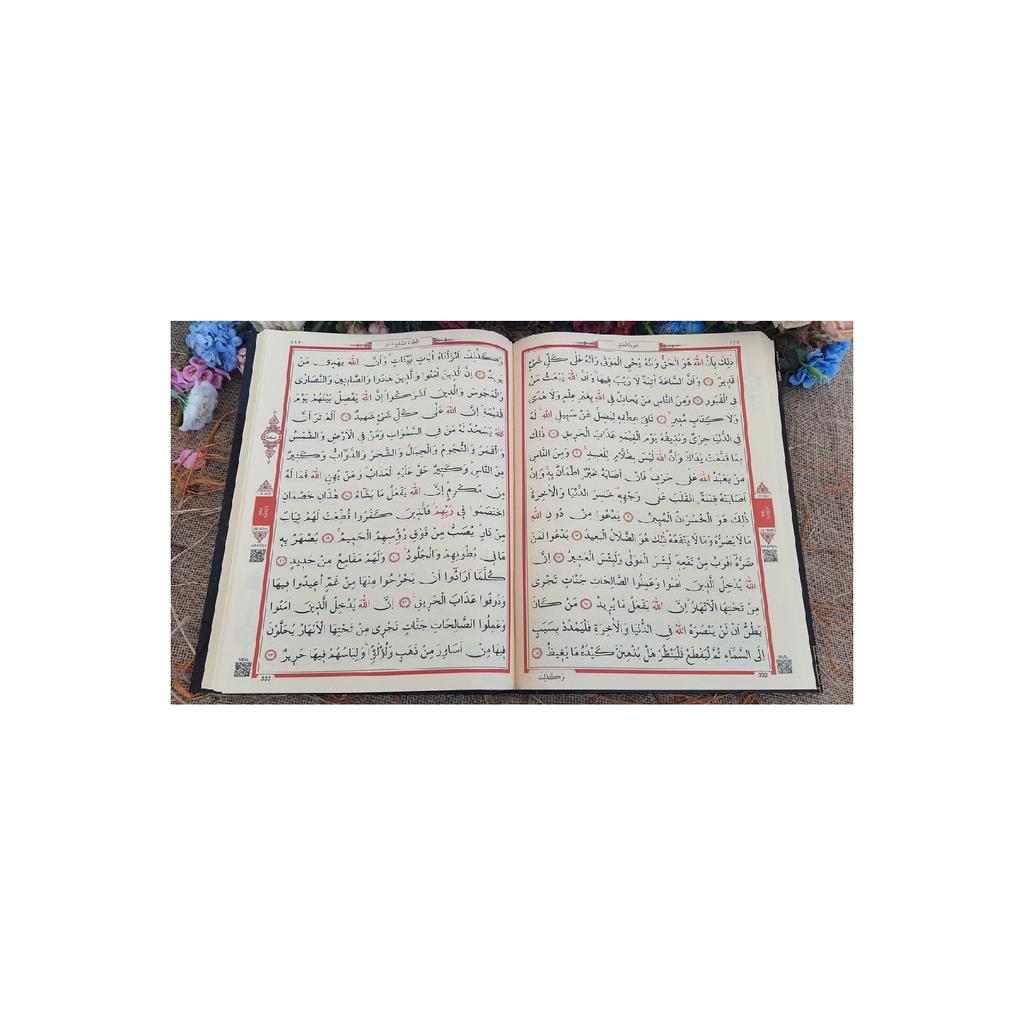 ذٰلِكَ بِاَنَّ اللّٰهَ هُوَ الْحَقُّ وَاَنَّهُ يُحْيِ الْمَوْتٰى وَاَنَّهُ عَلٰى كُلِّ شَيْءٍ
قَدِيرٌ ٦ وَاَنَّ السَّاعَةَ اٰتِيَةٌ لَا رَيْبَ فِيهَا وَاَنَّ اللّٰهَ يَبْعَثُ مَنْ
فِي الْقُبُورِ ٧ وَمِنَ النَّاسِ مَنْ يُجَادِلُ فِي اللّٰهِ بِغَيْرِ عِلْمٍ وَلَا هُدًى
وَلَا كِتَابٍ مُنِيرٍ ٨ ثَانِيَ عِطْفِهِ لِيُضِلَّ عَنْ سَبِيلِ اللّٰهِ لَهُ
فِي الدُّنْيَا خِزْيٌ وَنُذِيقُهُ يَوْمَ الْقِيٰمَةِ عَذَابَ الْحَرِيقِ ٩ ذٰلِكَ
بِمَا قَدَّمَتْ يَدَاكَ وَاَنَّ اللّٰهَ لَيْسَ بِظَلَّامٍ لِلْعَبِيدِ ١٠ وَمِنَ النَّاسِ
مَنْ يَعْبُدُ اللّٰهَ عَلٰى حَرْفٍ فَاِنْ اَصَابَهُ خَيْرٌ اطْمَاَنَّ بِهِ وَاِنْ
اَصَابَتْهُ فِتْنَةٌ انْقَلَبَ عَلٰى وَجْهِهِ خَسِرَ الدُّنْيَا وَالْاٰخِرَةَ
ذٰلِكَ هُوَ الْخُسْرَانُ الْمُبِينُ ١١ يَدْعُوا مِنْ دُونِ اللّٰهِ
مَا لَا يَضُرُّهُ وَمَا لَا يَنْفَعُهُ ذٰلِكَ هُوَ الضَّلَالُ الْبَعِيدُ ١٢ يَدْعُوا لَمَنْ
ضَرُّهُ اَقْرَبُ مِنْ نَفْعِهِ لَبِئْسَ الْمَوْلٰى وَلَبِئْسَ الْعَشِيرُ ١٣ اِنَّ
اللّٰهَ يُدْخِلُ الَّذِينَ اٰمَنُوا وَعَمِلُوا الصَّالِحَاتِ جَنَّاتٍ تَجْرِي
مِنْ تَحْتِهَا الْاَنْهَارُ اِنَّ اللّٰهَ يَفْعَلُ مَا يُرِيدُ ١٤ مَنْ كَانَ
يَظُنُّ اَنْ لَنْ يَنْصُرَهُ اللّٰهُ فِي الدُّنْيَا وَالْاٰخِرَةِ فَلْيَمْدُدْ بِسَبَبٍ
اِلَى السَّمَاءِ ثُمَّ لْيَقْطَعْ فَلْيَنْظُرْ هَلْ يُذْهِبَنَّ كَيْدُهُ مَا يَغِيظُ ١٥
وَكَذٰلِكَ
332
وَكَذٰلِكَ اَنْزَلْنَاهُ اٰيَاتٍ بَيِّنَاتٍ وَاَنَّ اللّٰهَ يَهْدِي مَنْ
يُرِيدُ ١٦ اِنَّ الَّذِينَ اٰمَنُوا وَالَّذِينَ هَادُوا وَالصَّابِئِينَ وَالنَّصَارٰى
وَالْمَجُوسَ وَالَّذِينَ اَشْرَكُوا اِنَّ اللّٰهَ يَفْصِلُ بَيْنَهُمْ يَوْمَ
الْقِيٰمَةِ اِنَّ اللّٰهَ عَلٰى كُلِّ شَيْءٍ شَهِيدٌ ١٧ اَلَمْ تَرَ اَنَّ
اللّٰهَ يَسْجُدُ لَهُ مَنْ فِي السَّمٰوَاتِ وَمَنْ فِي الْاَرْضِ وَالشَّمْسُ
وَالْقَمَرُ وَالنُّجُومُ وَالْجِبَالُ وَالشَّجَرُ وَالدَّوَابُّ وَكَثِيرٌ
مِنَ النَّاسِ وَكَثِيرٌ حَقَّ عَلَيْهِ الْعَذَابُ وَمَنْ يُهِنِ اللّٰهُ فَمَا لَهُ
مِنْ مُكْرِمٍ اِنَّ اللّٰهَ يَفْعَلُ مَا يَشَاءُ ١٨ هٰذَانِ خَصْمَانِ
اخْتَصَمُوا فِي رَبِّهِمْ فَالَّذِينَ كَفَرُوا قُطِّعَتْ لَهُمْ ثِيَابٌ
مِنْ نَارٍ يُصَبُّ مِنْ فَوْقِ رُؤُسِهِمُ الْحَمِيمُ ١٩ يُصْهَرُ بِهِ
مَا فِي بُطُونِهِمْ وَالْجُلُودُ ٢٠ وَلَهُمْ مَقَامِعُ مِنْ حَدِيدٍ ٢١
كُلَّمَا اَرَادُوا اَنْ يَخْرُجُوا مِنْهَا مِنْ غَمٍّ اُعِيدُوا فِيهَا
وَذُوقُوا عَذَابَ الْحَرِيقِ ٢٢ اِنَّ اللّٰهَ يُدْخِلُ الَّذِينَ اٰمَنُوا
وَعَمِلُوا الصَّالِحَاتِ جَنَّاتٍ تَجْرِي مِنْ تَحْتِهَا الْاَنْهَارُ يُحَلَّوْنَ
فِيهَا مِنْ اَسَاوِرَ مِنْ ذَهَبٍ وَلُؤْلُؤًا وَلِبَاسُهُمْ فِيهَا حَرِيرٌ ٢٣
333
MEAL
MEAL